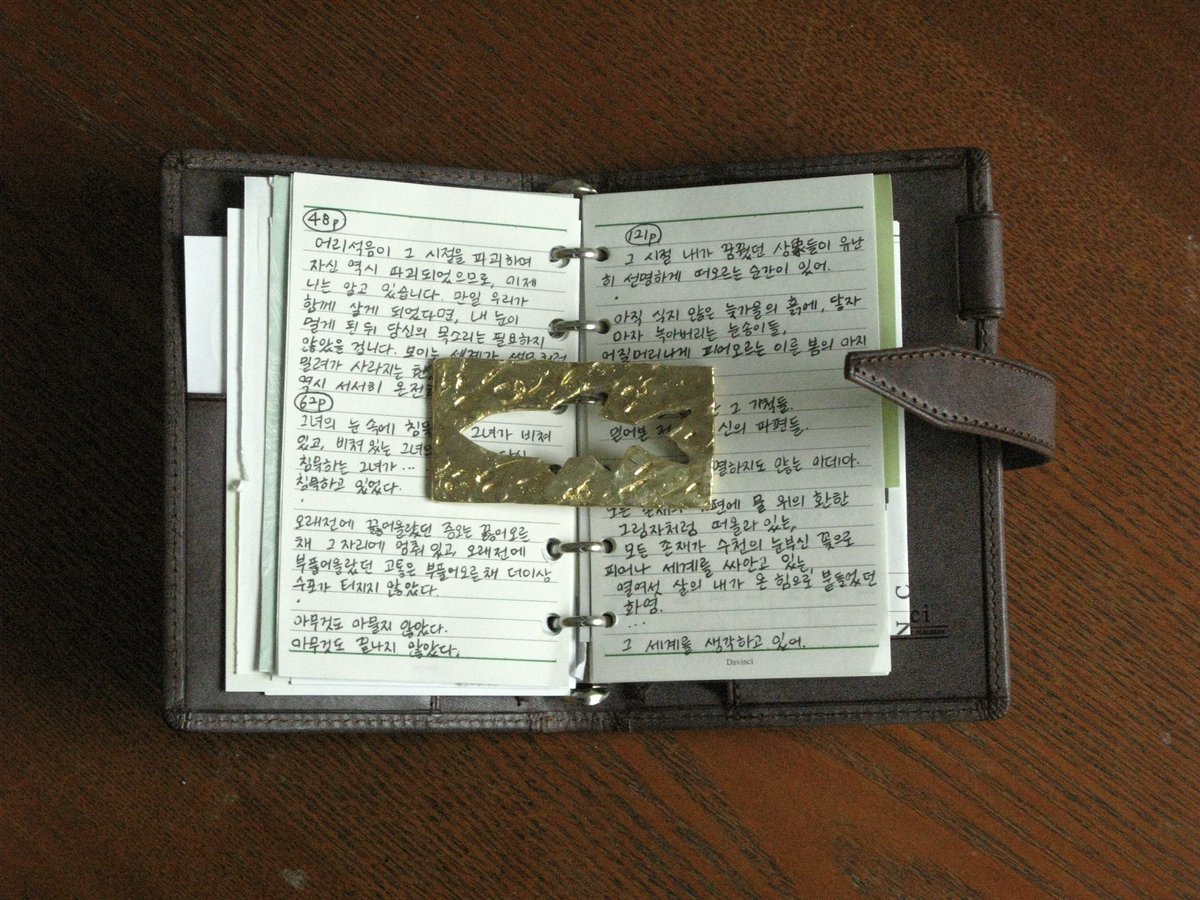 48p
어리석음이 그 시절을 파괴하며
자신 역시 파괴되었으므로, 이제
나는 알고 있습니다. 만일 우리가
함께 살게 되었다면, 내 눈이
멀게 된 뒤 당신의 목소리는 필요하지
않았을 겁니다. 보이는 세계가
밀려가 사라지는
역시 서서히
62p
그녀의 눈 속에 그녀가 비쳐
있고, 비쳐 있는 그녀의
침묵하는 그녀가 ...
침묵하고 있었다.
.
오래전에 끓어올랐던 증오는 끓어오른
채 그 자리에 멈춰 있고, 오래전에
부풀어올랐던 고통은 부풀어오른 채 더이상
수포가 터지지 않았다.
.
아무것도 아물지 않았다.
아무것도 끝나지 않았다.
121p
그 시절 내가 꿈꿨던 들이 유난
히 선명하게 떠오르는 순간이 있어.
.
아직 식지 않은 늦가을의 흙에, 닿자
마자 녹아버리는 눈송이들,
어질머리나게 피어오르는 이른 봄의 아지
그 기척들.
믿어본 신의 파편들.
멸하지도 않는 이데아.
편에 물 위의 환한
그림자처럼 떠올라 있는,
모든 존재가 수천의 눈부신 꽃으로
피어나 세계를 싸안고 있는,
열여섯 살의 내가 온 힘으로 붙들었던
화엄.
...
그 세계를 생각하고 있어.
Davinci